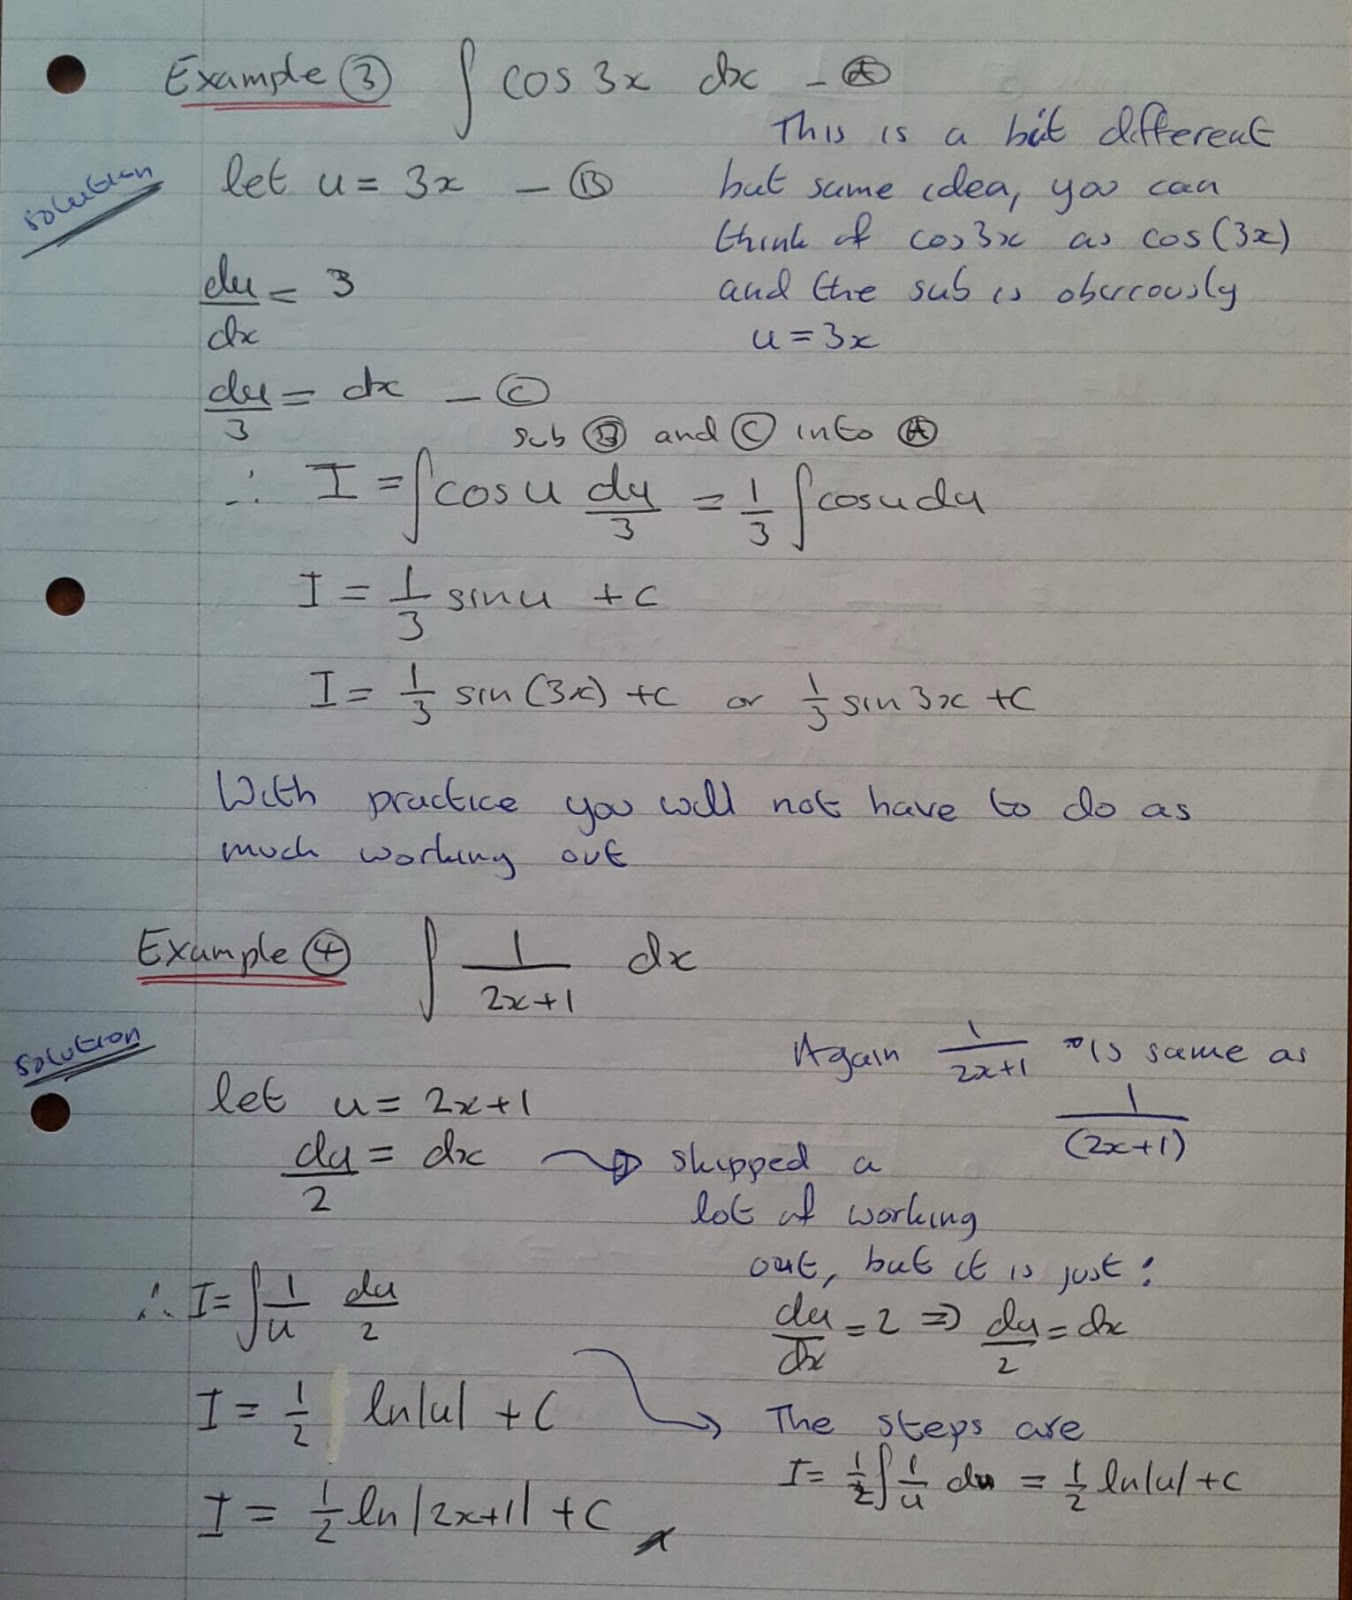 Example ③ ∫ cos 3x dx - Ⓐ
This is a bit different
solution
let u = 3x - Ⓑ
but same idea, you can
think of cos3x as cos(3x)
and the sub is obviously
u = 3x
du/dx = 3
du/3 = dx - Ⓒ
sub Ⓑ and Ⓒ into Ⓐ
∴ I = ∫cos u du/3 = 1/3 ∫cosudu
I = 1/3 sinu + c
I = 1/3 sin(3x) + c or 1/3 sin3x + c
With practice you will not have to do as
much working out
Example ④ ∫ 1/(2x+1) dx
solution
Again 1/(2x+1) is same as
1/((2x+1))
let u = 2x+1
du/2 = dx → skipped a
lot of working
out, but it is just:
du/dx = 2 ⇒ du/2 = dx
∴ I = ∫ 1/u du/2
I = 1/2 ln|u| + C
→ The steps are
I = 1/2 ∫ 1/u du = 1/2 ln|u| + C
I = 1/2 ln|2x+1| + C